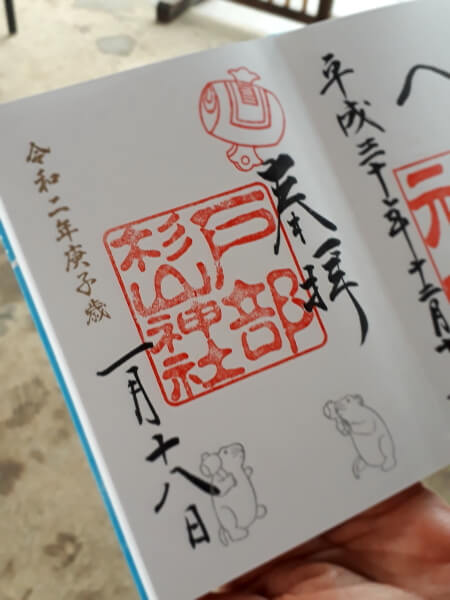 平成三十年十二月十
元
奉拝
戸部
杉山神社
令和二年庚子歳
一月十八日